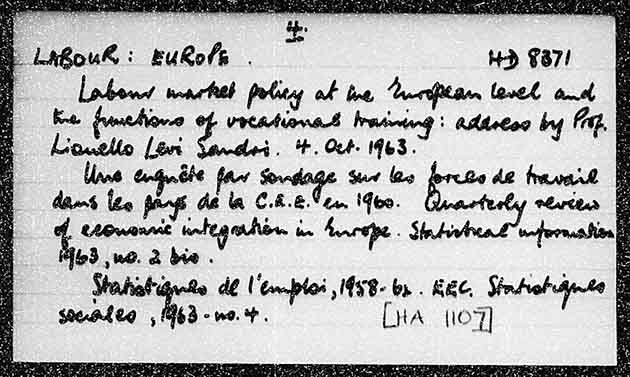 4.
LABOUR: EUROPE. HD 8371
Labour market policy at the European level and
the functions of vocational training: address by Prof.
Lionello Levi Sandri. 4. Oct. 1963.
Une enquête par sondage sur les forces de travail
dans les pays de la C.E.E. en 1960. Quarterly review
of economic integration in Europe. Statistical information
1963, no. 2 bis.
Statistiques de l'emploi, 1958-62. EEC. Statistiques
sociales, 1963-no. 4. [HA 1107]